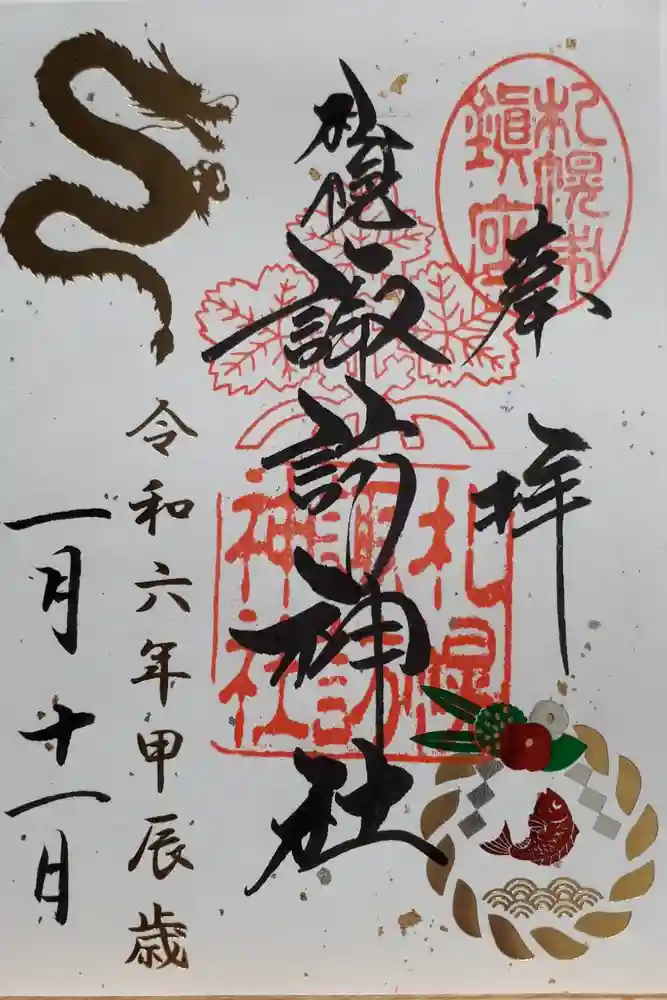 奉拝
札幌市
鎮座
札幌諏訪神社
札幌
諏訪
神社
令和六年甲辰歳
一月十一日